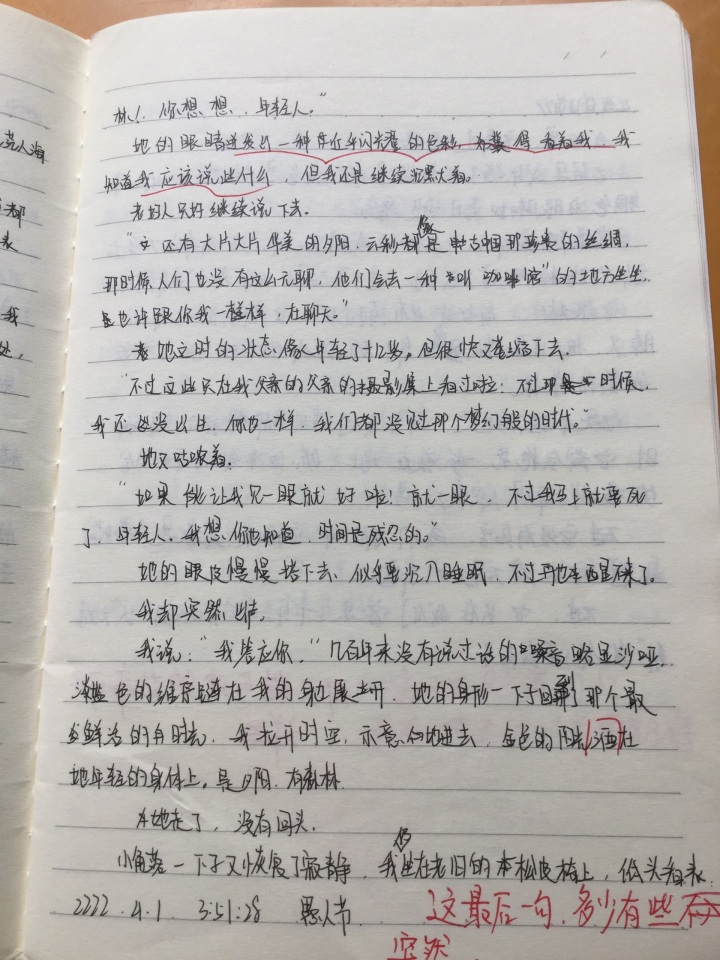 林！你想想，年轻人。"
她的眼睛迸发出一种接近于闪耀的色彩，看着我，我
知道我应该说些什么 但我还是继续沉默着。
老妇人只好继续说下去。
"还有大片大片华美的夕阳，云彩都像是中古国那华美的丝绸，
那时候人们也没有这么无聊，他们会去一种叫"咖啡馆"的地方坐坐，
也许跟你我一样，在聊天。"
她这时的状态像年轻了十几岁，但很快又萎缩下去。
"不过这些只在我父亲的父亲的摄影集上看过啦！不过那时候，
我还没出生，你也一样，我们都没见过那个梦幻般的时代。"
她又咕哝着。
"如果能让我见一眼就好啦！就一眼，不过我马上就要死
了，年轻人。我想你也知道，时间是残忍的。"
她的眼皮慢慢搭下去，似乎要坠入睡眠，不过再也醒不来了。
我却突然出声。
我说："我答应你，"几百年来没有说过话的嗓音略显沙哑。
色的维度链在我的身边展开，她的身形一下子回到了那个最
鲜活的时光，我拉开时空，示意她进去，金色的阳光洒在
她年轻的身体上，是夕阳，有森林
她走了，没有回头。
小角落一下子又恢复了寂静，我仍坐在老旧的松皮椅上，低头看表：
2222.4.1 3:51:28 愚人节
这最后一句，多少有些
突然